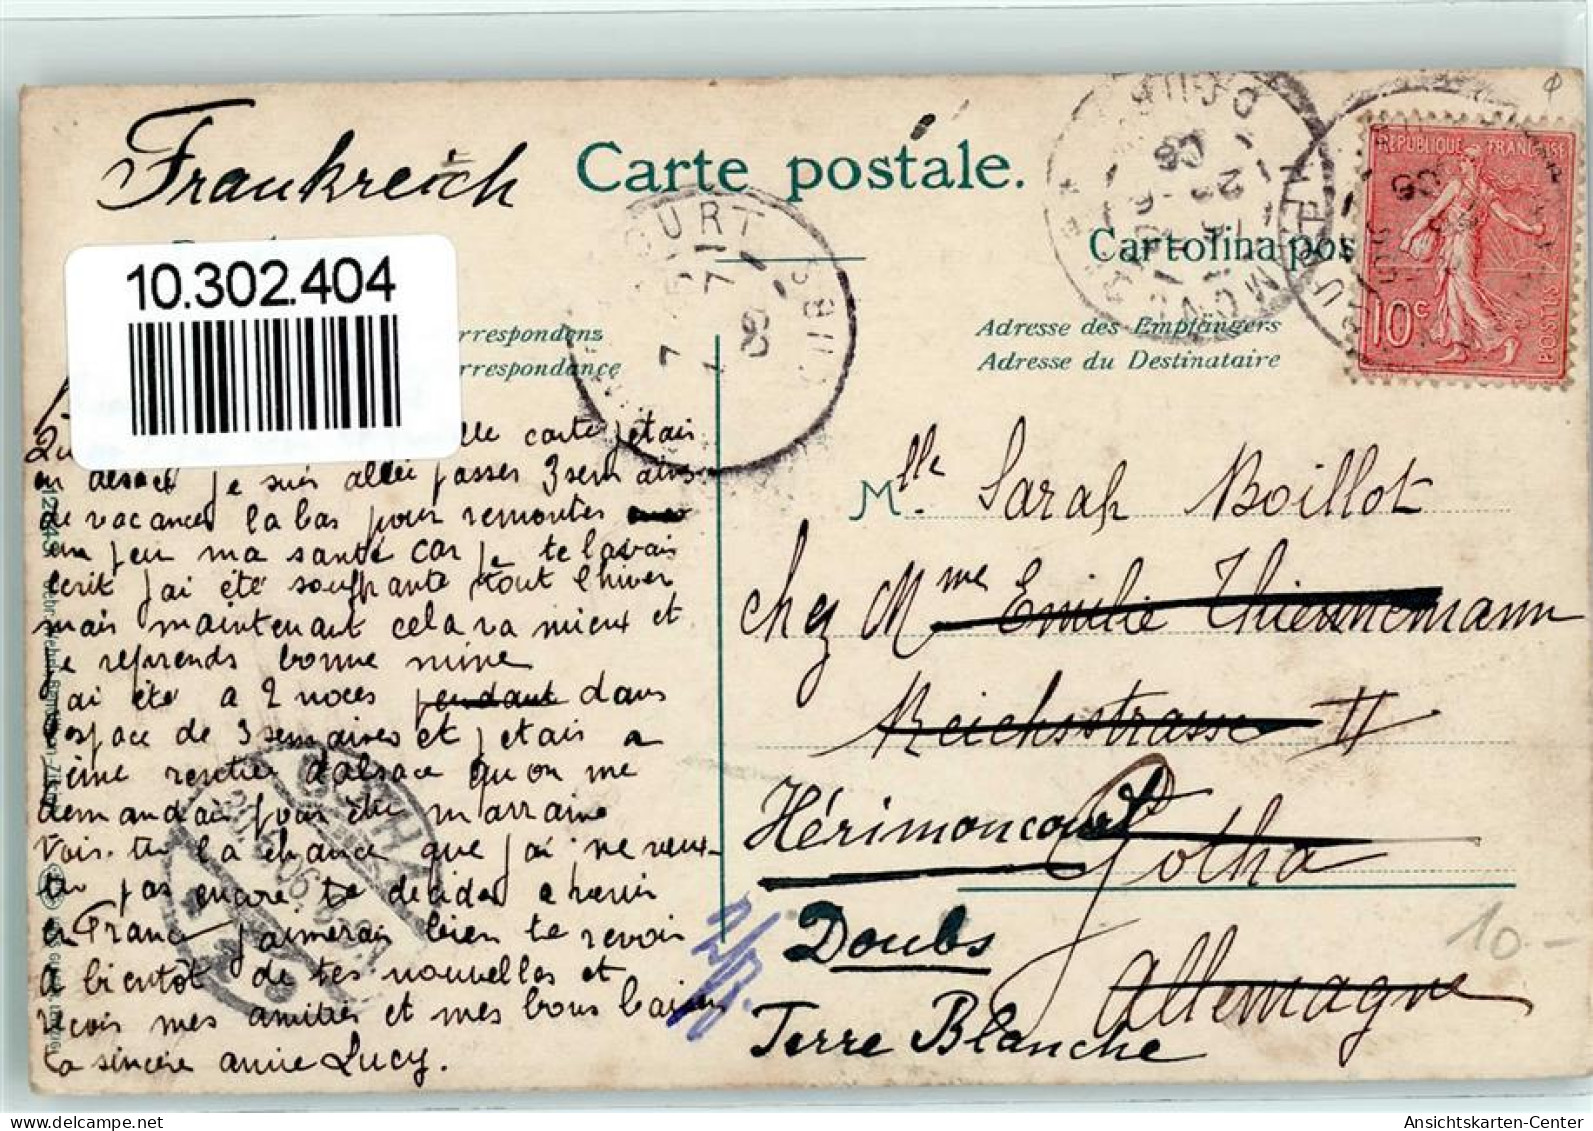 Frankreich
Carte postale.
Cartolina pos
10.302.404
rrespondenz
rrespondance
Adresse des Empfängers
Adresse du Destinataire
REPUBLIQUE FRANÇAISE
10c
POSTES
lle carte j'étais
en alsace je suis allée passer 3 semaines
de vacances la bas pour remonter
un peu ma santé car je te lavais
écrit j'ai été souffrante tout l'hiver
mais maintenant cela va mieux et
je reprends bonne mine
j'ai été a 2 noces pendant dans
l'espace de 3 semaines et j'etais a
peine rentrée d'alsace qu'on me
demandait pour être marraine
Vois-tu la chance que j'ai ne veux-
tu pas encore te decider a revenir
en France j'aimerais bien te revoir
A bientôt de tes nouvelles et
reçois mes amitiés et mes bons baisers
ta sincère amie Lucy.
Mlle. Sarah Boillot
chez Mme Emilie Thiennemann
Reichsstrasse 11
Hérimoncourt
Gotha
Doubs
Allemagne
Terre Blanche
GOTHA
10 -
AnsichtsKarten-Center